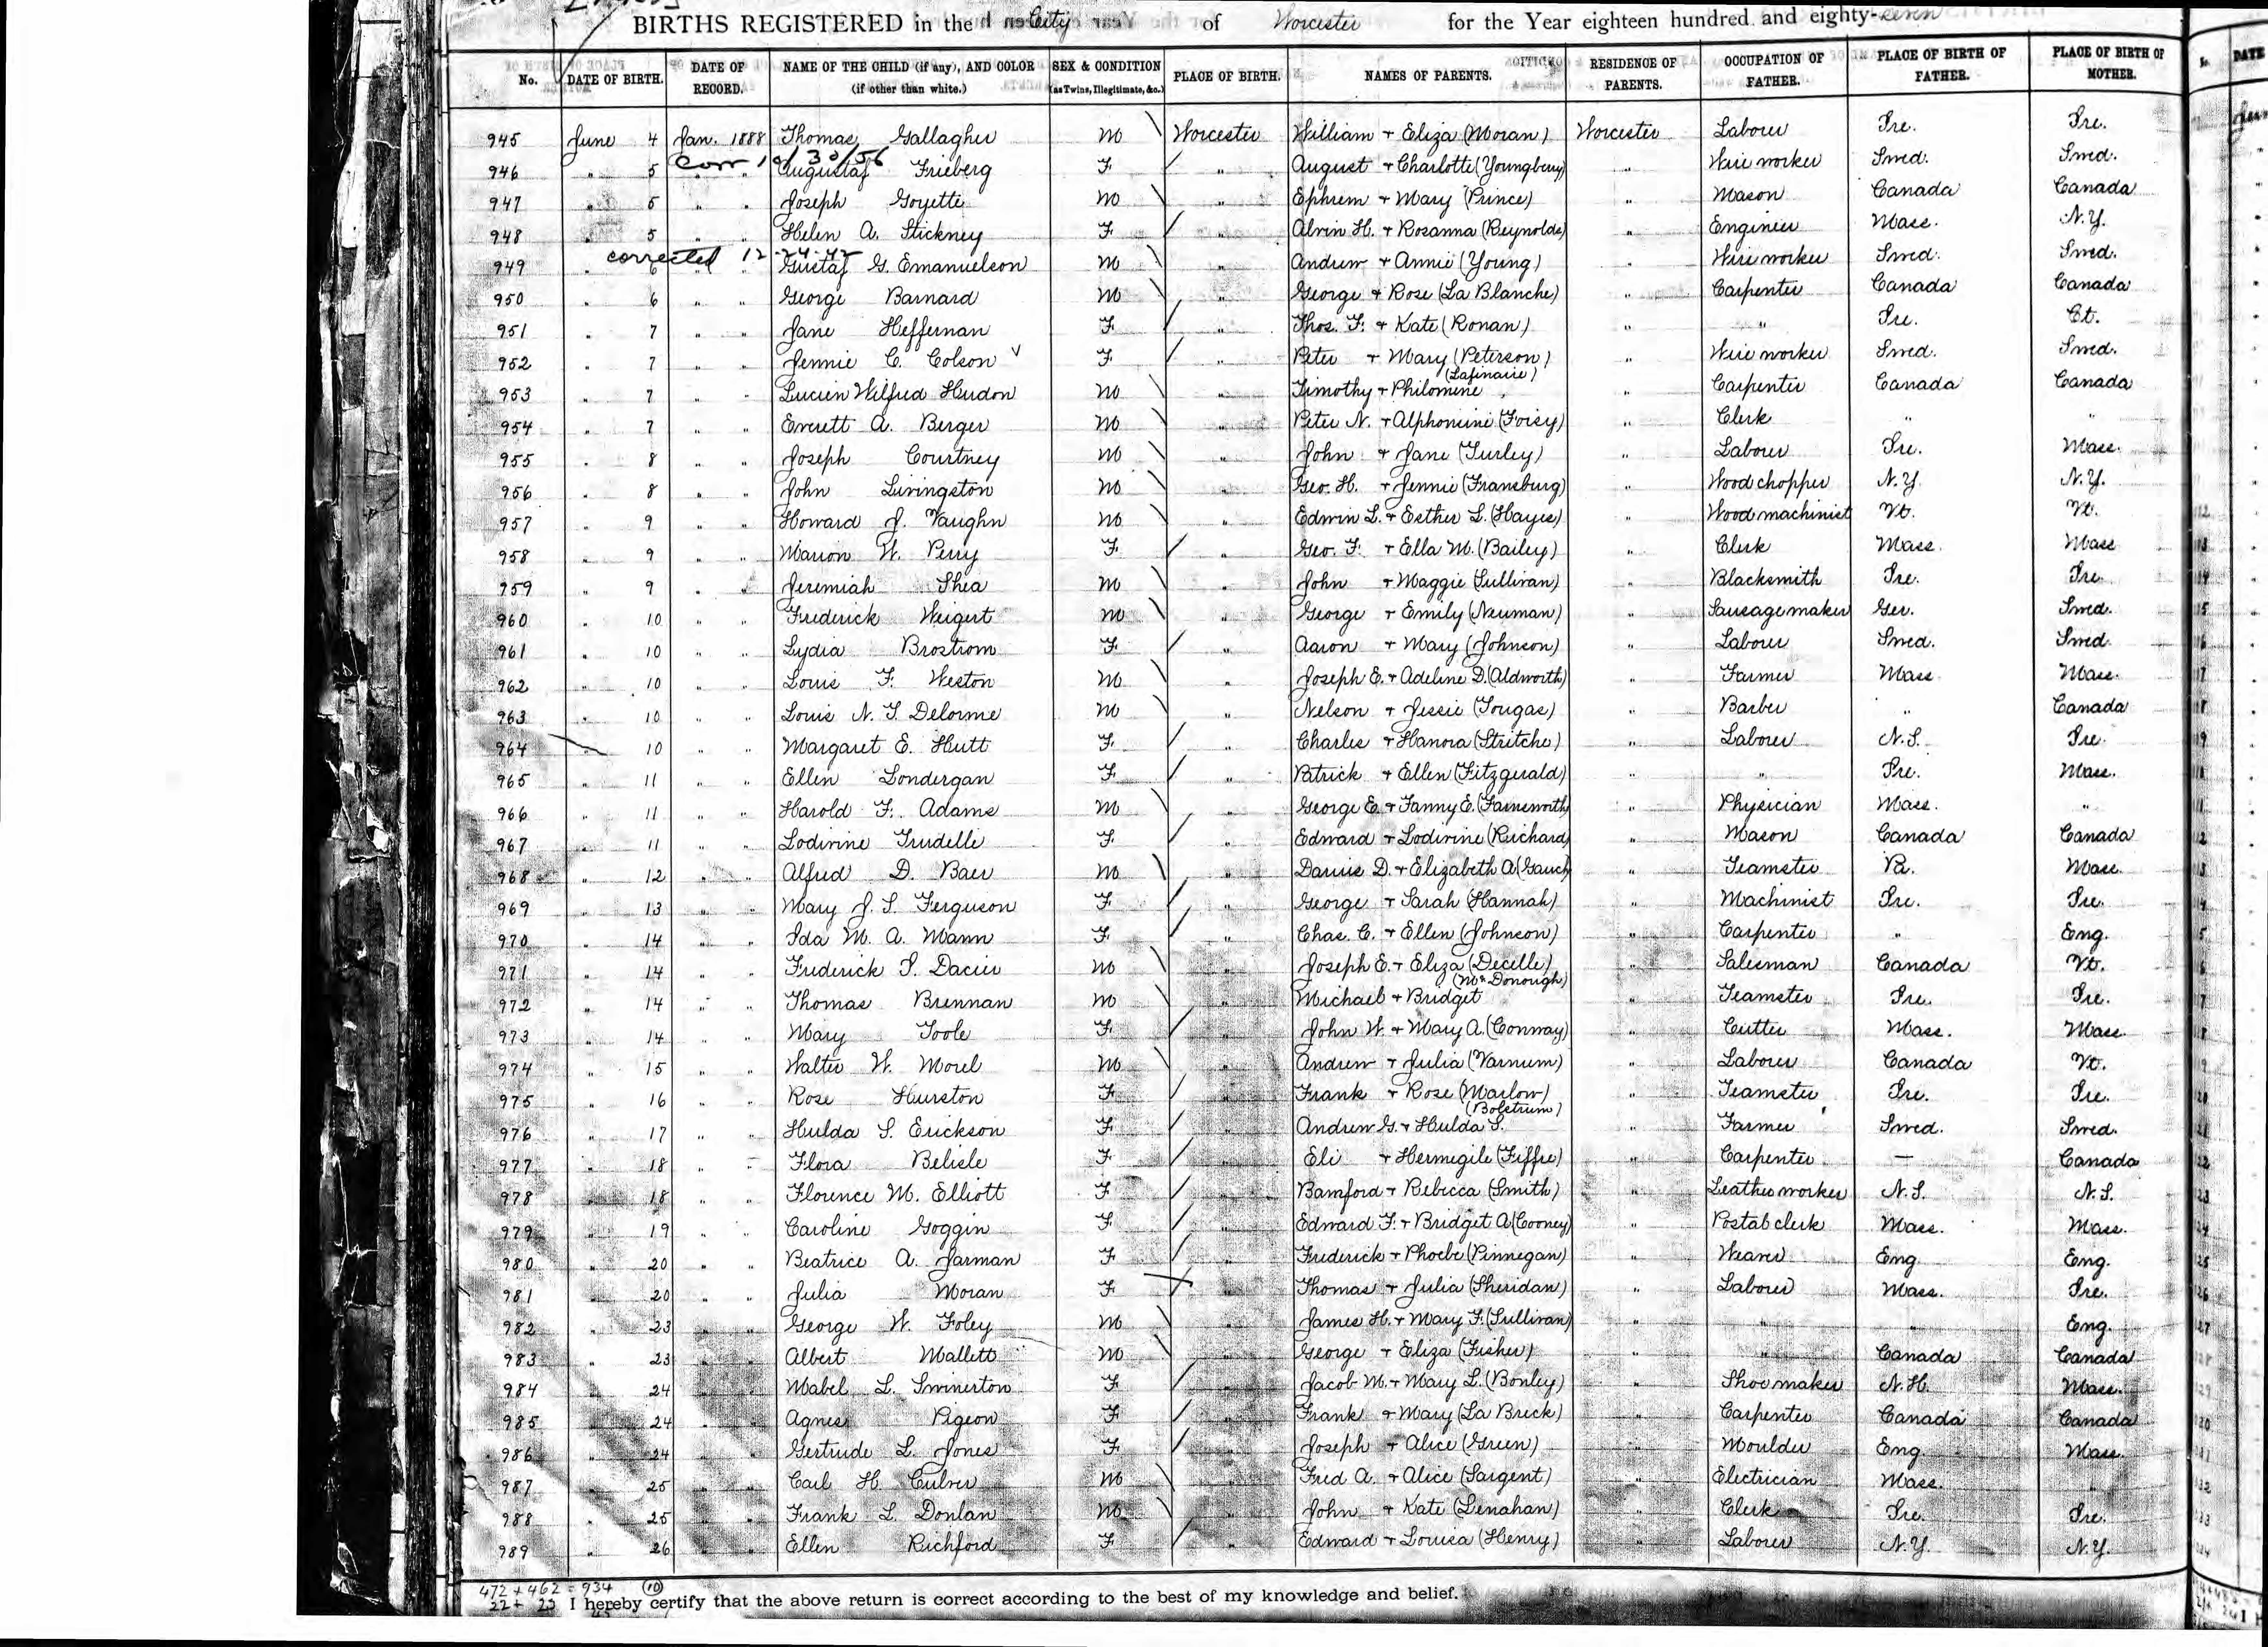 BIRTHS REGISTERED in the City of Worcester for the Year eighteen hundred and eighty-seven
No. DATE OF BIRTH. DATE OF RECORD. NAME OF THE CHILD (if any), AND COLOR (if other than white.) SEX & CONDITION (as Twins, Illegitimate, &c.) PLACE OF BIRTH. NAMES OF PARENTS. RESIDENCE OF PARENTS. OCCUPATION OF FATHER. PLACE OF BIRTH OF FATHER. PLACE OF BIRTH OF MOTHER.
945 June 4 Jan. 1888 Thomas Gallagher M Worcester William + Eliza (Moran) Worcester Laborer Ire. Ire.
Corr 10/30/56
946 " 5 Augustaf Frieberg F " August + Charlotte (Youngberg) " Wire worker Swed. Swed.
947 " 5 " " Joseph Goyette M " Ephrem + Mary (Prince) " Mason Canada Canada
948 " 5 " " Helen A. Stickney F " Alvin H. + Rosanna (Reynolds) " Engineer Mass. N.Y.
corrected 12-24-42
949 " 6 Gustaf G. Emanuelson M " Andrew + Annie (Young) " Wire worker Swed. Swed.
950 " 6 " " George Barnard M " George + Rose (La Blanche) " Carpenter Canada Canada
951 " 7 " " Jane Heffernan F " Thos. F. + Kate (Ronan) " " Ire. Ct.
952 " 7 " " Jennie C. Colson F " Peter + Mary (Peterson) " Wire worker Swed. Swed.
953 " 7 " " Lucien Wilfred Hudon M " Timothy + Philomine (Lafinaire) " Carpenter Canada Canada
954 " 7 " " Everett A. Berger M " Peter N. + Alphonsine (Foisy) " Clerk " "
955 " 8 " " Joseph Courtney M " John + Jane (Turley) " Laborer Ire. Mass.
956 " 8 " " John Livingston M " Geo. H. + Jennie (Fransburg) " Wood chopper N.Y. N.Y.
957 " 9 " " Howard J. Vaughn M " Edwin L. + Esther L. (Hayes) " Wood machinist Vt. Vt.
958 " 9 " " Marion W. Perry F " Geo. F. + Ella M. (Bailey) " Clerk Mass. Mass
959 " 9 " " Jeremiah Shea M " John + Maggie (Sullivan) " Blacksmith Ire. Ire.
960 " 10 " " Frederick Weigert M " George + Emily (Neuman) " Sausage maker Ger. Swed.
961 " 10 " " Lydia Brostrom F " Aaron + Mary (Johnson) " Laborer Swed. Swed.
962 " 10 " " Louis F. Weston M " Joseph E. + Adeline D. (Aldworth) " Farmer Mass. Mass.
963 " 10 " " Louis N. T. Delorme M " Nelson + Jessie (Tougas) " Barber " Canada
964 " 10 " " Margaret E. Hutt F " Charles + Hanora (Stritche) " Laborer N.S. Ire.
965 " 11 " " Ellen Londergan F " Patrick + Ellen (Fitzgerald) " " Ire. Mass.
966 " 11 " " Harold F. Adams M " George E. + Fanny E. (Farnsworth) " Physician Mass. "
967 " 11 " " Lodivine Trudelle F " Edward + Lodivine (Richard) " Mason Canada Canada
968 " 12 " " Alfred D. Baer M " Darius D. + Elizabeth A (Gauch) " Teamster Pa. Mass.
969 " 13 " " Mary J. S. Ferguson F " George + Sarah (Hannah) " Machinist Ire. Ire.
970 " 14 " " Ida M. A. Mann F " Chas. C. + Ellen (Johnson) " Carpenter " Eng.
971 " 14 " " Frederick S. Dacier M " Joseph E. + Eliza (Decelle) " Salesman Canada Vt.
972 " 14 " " Thomas Brennan M " Michael + Bridget (McDonough) " Teamster Ire. Ire.
973 " 14 " " Mary Toole F " John W. + Mary A. (Conway) " Cutter Mass. Mass.
974 " 15 " " Walter W. Morel M " Andrew + Julia (Varnum) " Laborer Canada Vt.
975 " 16 " " Rose Hurston F " Frank + Rose (Marlow) " Teamster Ire. Ire.
976 " 17 " " Hulda S. Erickson F " Andrew G. + Hulda S. (Bolstrum) " Farmer Swed. Swed.
977 " 18 " " Flora Belisle F " Eli + Hermegile (Fiffre) " Carpenter — Canada
978 " 18 " " Florence M. Elliott F " Bamford + Rebecca (Smith) " Leather worker N.S. N.S.
979 " 19 " " Caroline Goggin F " Edward F. + Bridget A (Cooney) " Postal clerk Mass. Mass.
980 " 20 " " Beatrice A. Jarman F " Frederick + Phoebe (Pinnegan) " Weaver Eng. Eng.
981 " 20 " " Julia Moran F " Thomas + Julia (Sheridan) " Laborer Mass. Ire.
982 " 23 " " George W. Foley M " James H. + Mary F. (Sullivan) " " " Eng.
983 " 23 " " Albert Mallett M " George + Eliza (Fisher) " " Canada Canada
984 " 24 " " Mabel L. Swinerton F " Jacob M. + Mary L. (Bonley) " Shoe maker N.H. Mass.
985 " 24 " " Agnes Pigeon F " Frank + Mary (La Breck) " Carpenter Canada Canada
986 " 24 " " Gertrude L. Jones F " Joseph + Alice (Green) " Moulder Eng. Mass.
987 " 25 " " Carl H. Culver M " Fred A. + Alice (Sargent) " Electrician Mass. "
988 " 25 " " Frank L. Donlan M " John + Kate (Lenahan) " Clerk Ire. Ire.
989 " 26 " " Ellen Richford F " Edward + Louisa (Henry) " Laborer N.Y. N.Y.
472 + 462 = 934 (10)
22 + 23 I hereby certify that the above return is correct according to the best of my knowledge and belief.
45